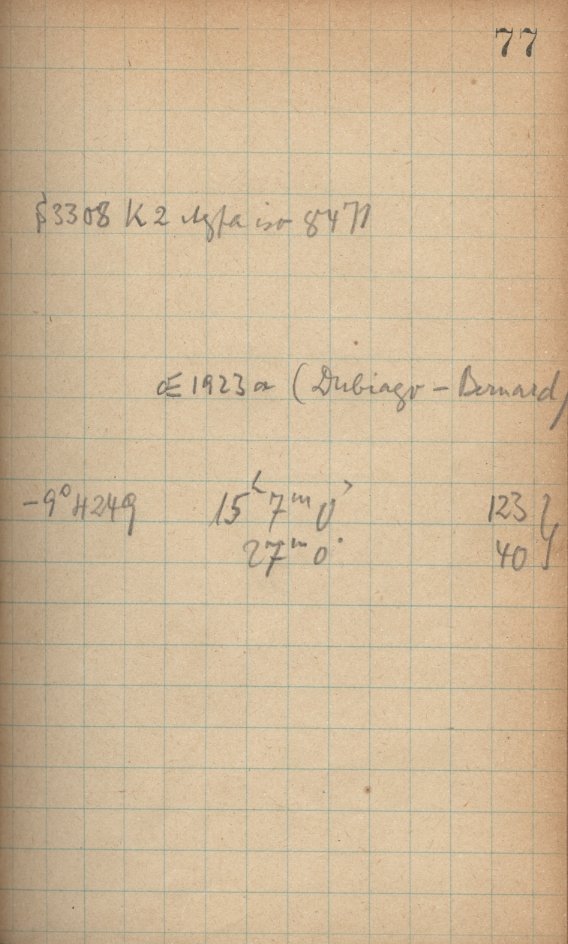 77
3308 K2 8471
1923 a (Dubiago - Bernard)
-9° 4249 15h 7m 0s 123 }
27m 0s 40